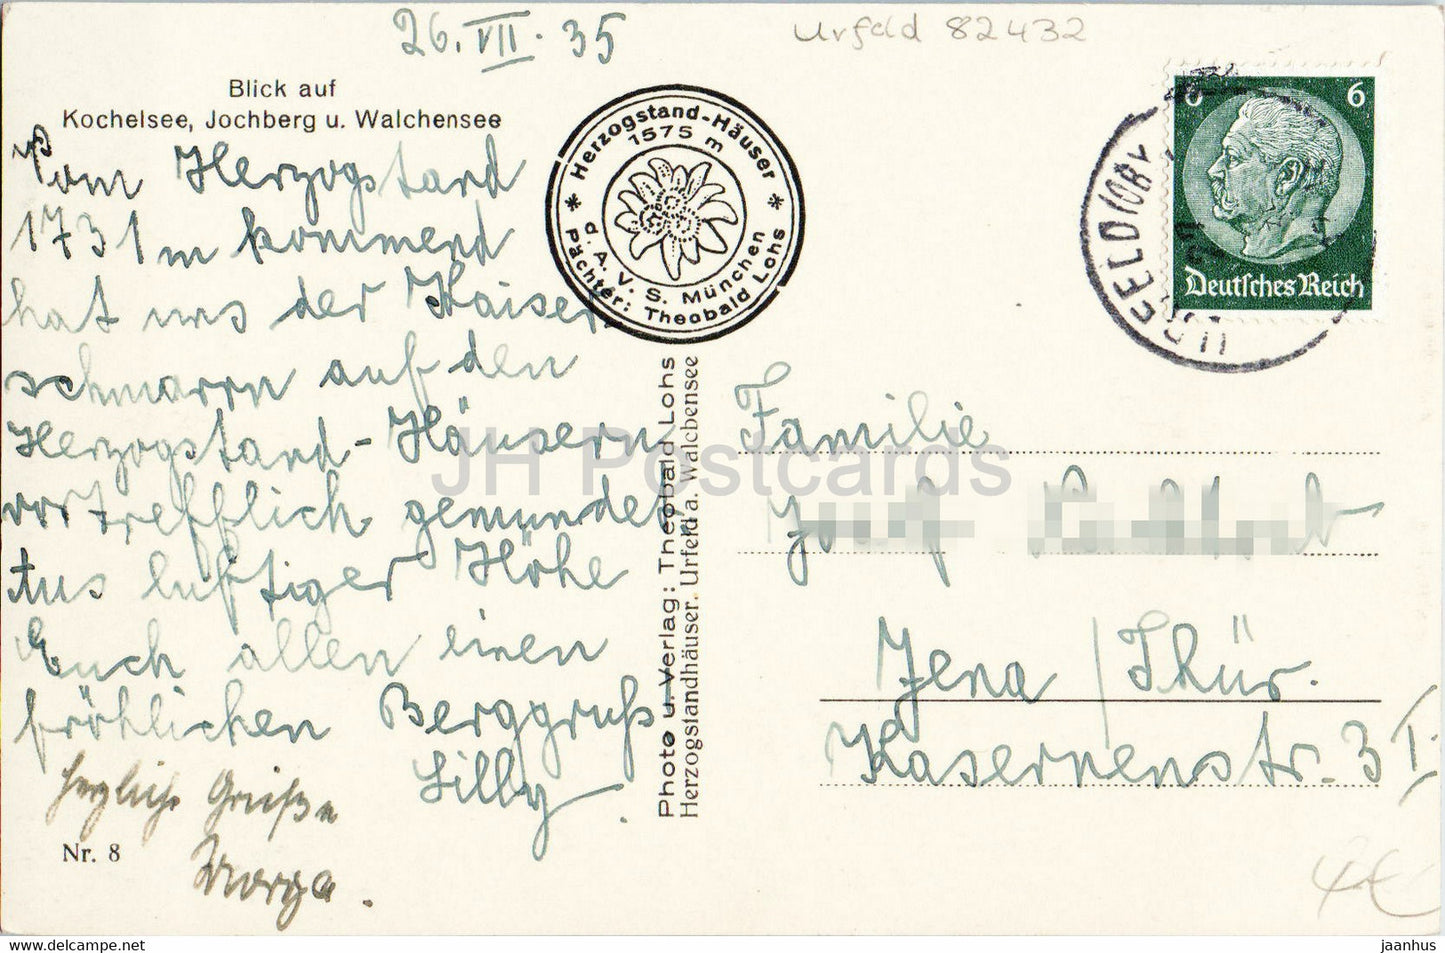 26. VII. 35
Urfeld 82432
Blick auf
Kochelsee, Jochberg u. Walchensee
Vom Herzogstand
1731 m kommend
hat uns der Kaiser
schmarrn auf den
Herzogstand-Häusern
vortrefflich gemundet.
Aus luftiger Höhe
Euch allen einen
fröhlichen Berggruß
Lilly.
herzliche Grüße
Nr. 8
* Herzogstand-Häuser *
1575 m
d. A. V. S. München
Pächter: Theobald Lohs
Photo u. Verlag: Theobald Lohs
Herzogstandhäuser. Urfeld a. Walchensee
6 6
Deutsches Reich
URFELD (OBAY
Familie
Jena / Thür.
Kasernenstr. 3 I.
4€
JH Postcards
jaanhus
www.delcampe.net